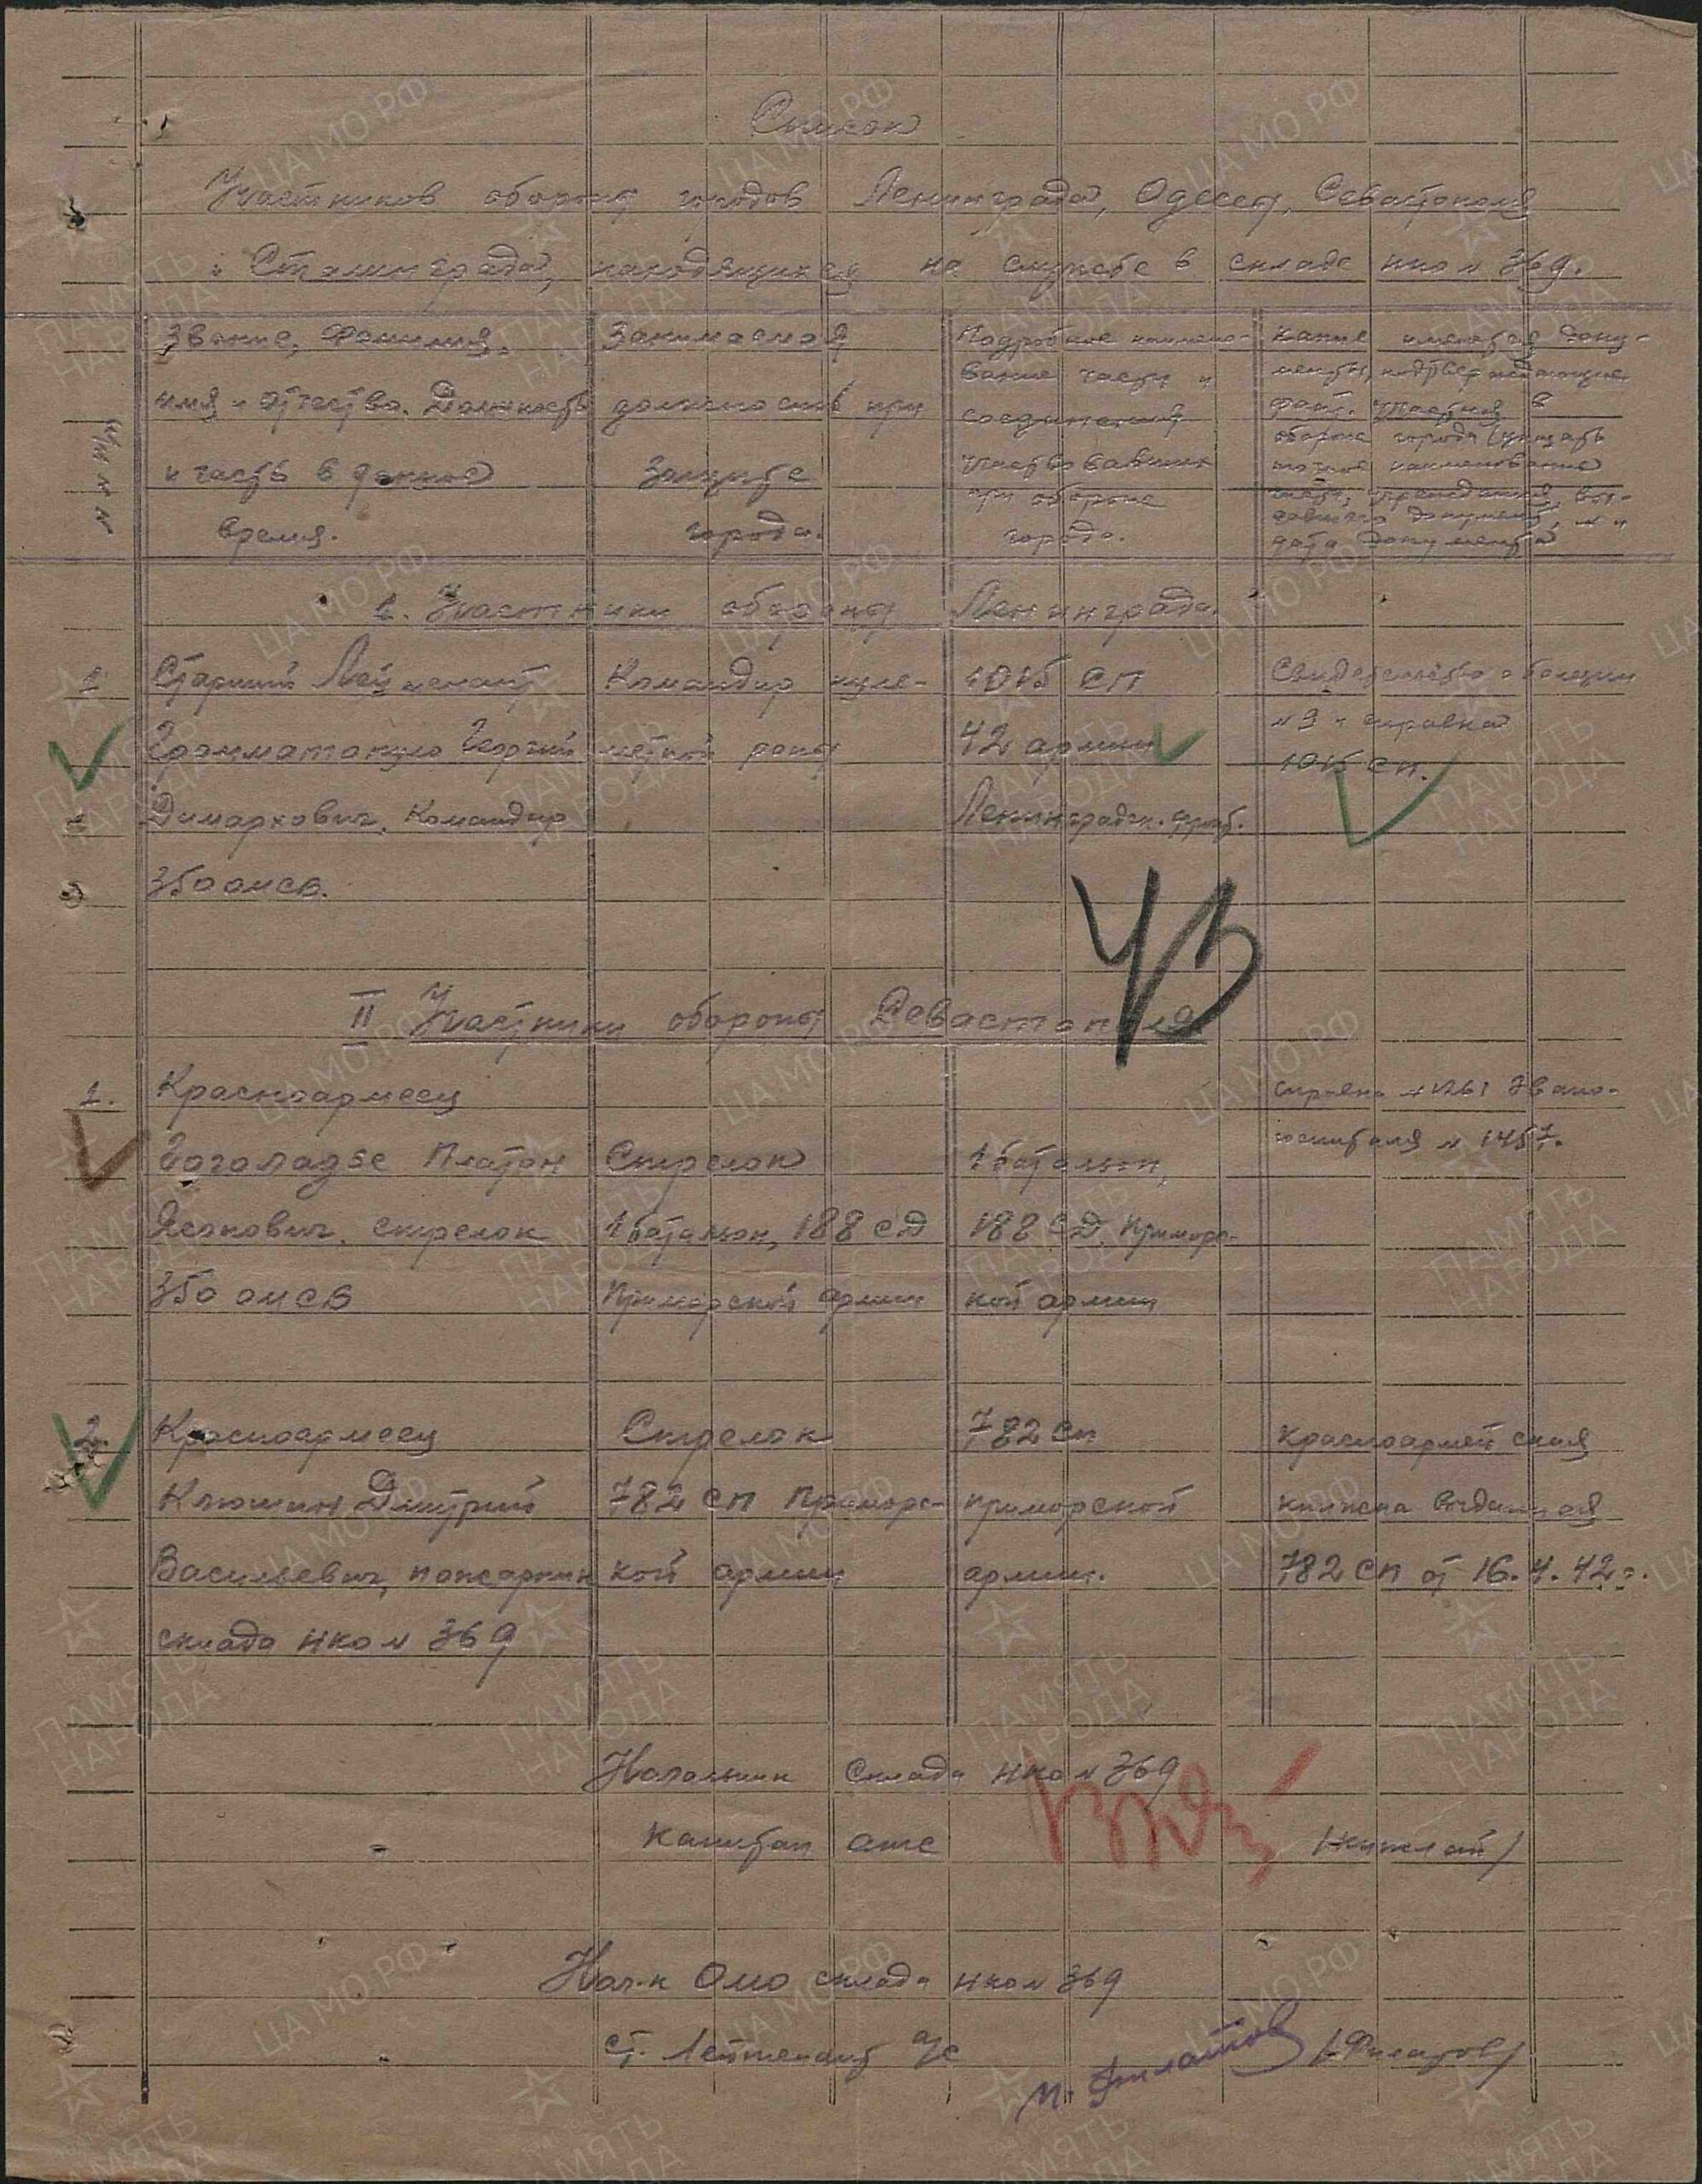 Список
Участников обороны городов Ленинграда, Одессы, Севастополя
и Сталинграда, находящихся на службе в складе НКО № 369.
№ № п/п
Звание, Фамилия,
имя и отчество. Должность
и часть в данное
время.
Занимаемая
должность при
Защите
города.
Подробное наимено-
вание части и
соединения
участвовавших
при обороне
города.
Какие имеются доку-
менты, подтверждающие
факт участия в
обороне города (указать
точное наименование
части, учреждения, вы-
давшего документ, № и
дата документа
1. Участники обороны Ленинграда.
1
Старший Лейтенант
Грамматопуло Георгий
Димархович, Командир
350 омсв.
Командир пуле-
метной роты
1015 СП
42 армии
Ленинградск. фронт.
Свидетельство о болезни
№ 9 и справка
1015 СП.
ЧВ
II Участники обороны Севастополя
1.
Красноармеец
Гогаладзе Платон
Ясонович, стрелок
350 омсв
Стрелок
1 батальон, 188 СД
Приморской армии
1 батальон,
188 СД, Приморс-
кой армии
справка № 1261 Эвако-
госпиталя № 1457.
2.
Красноармеец
Клюшин Дмитрий
Васильевич, пожарник
склада НКО № 369
Стрелок
782 СП Приморс-
кой армии
782 СП
приморской
армии.
Красноармейская
книжка выданная
782 СП от 16.4.42 г.
Начальник Склада НКО № 369
Капитан а/тс
Нач-к Омо склада НКО № 369
ст. Лейтенант а/с
М. Филатов /Филатов/
ЦА МО РФ
ПАМЯТЬ НАРОДА